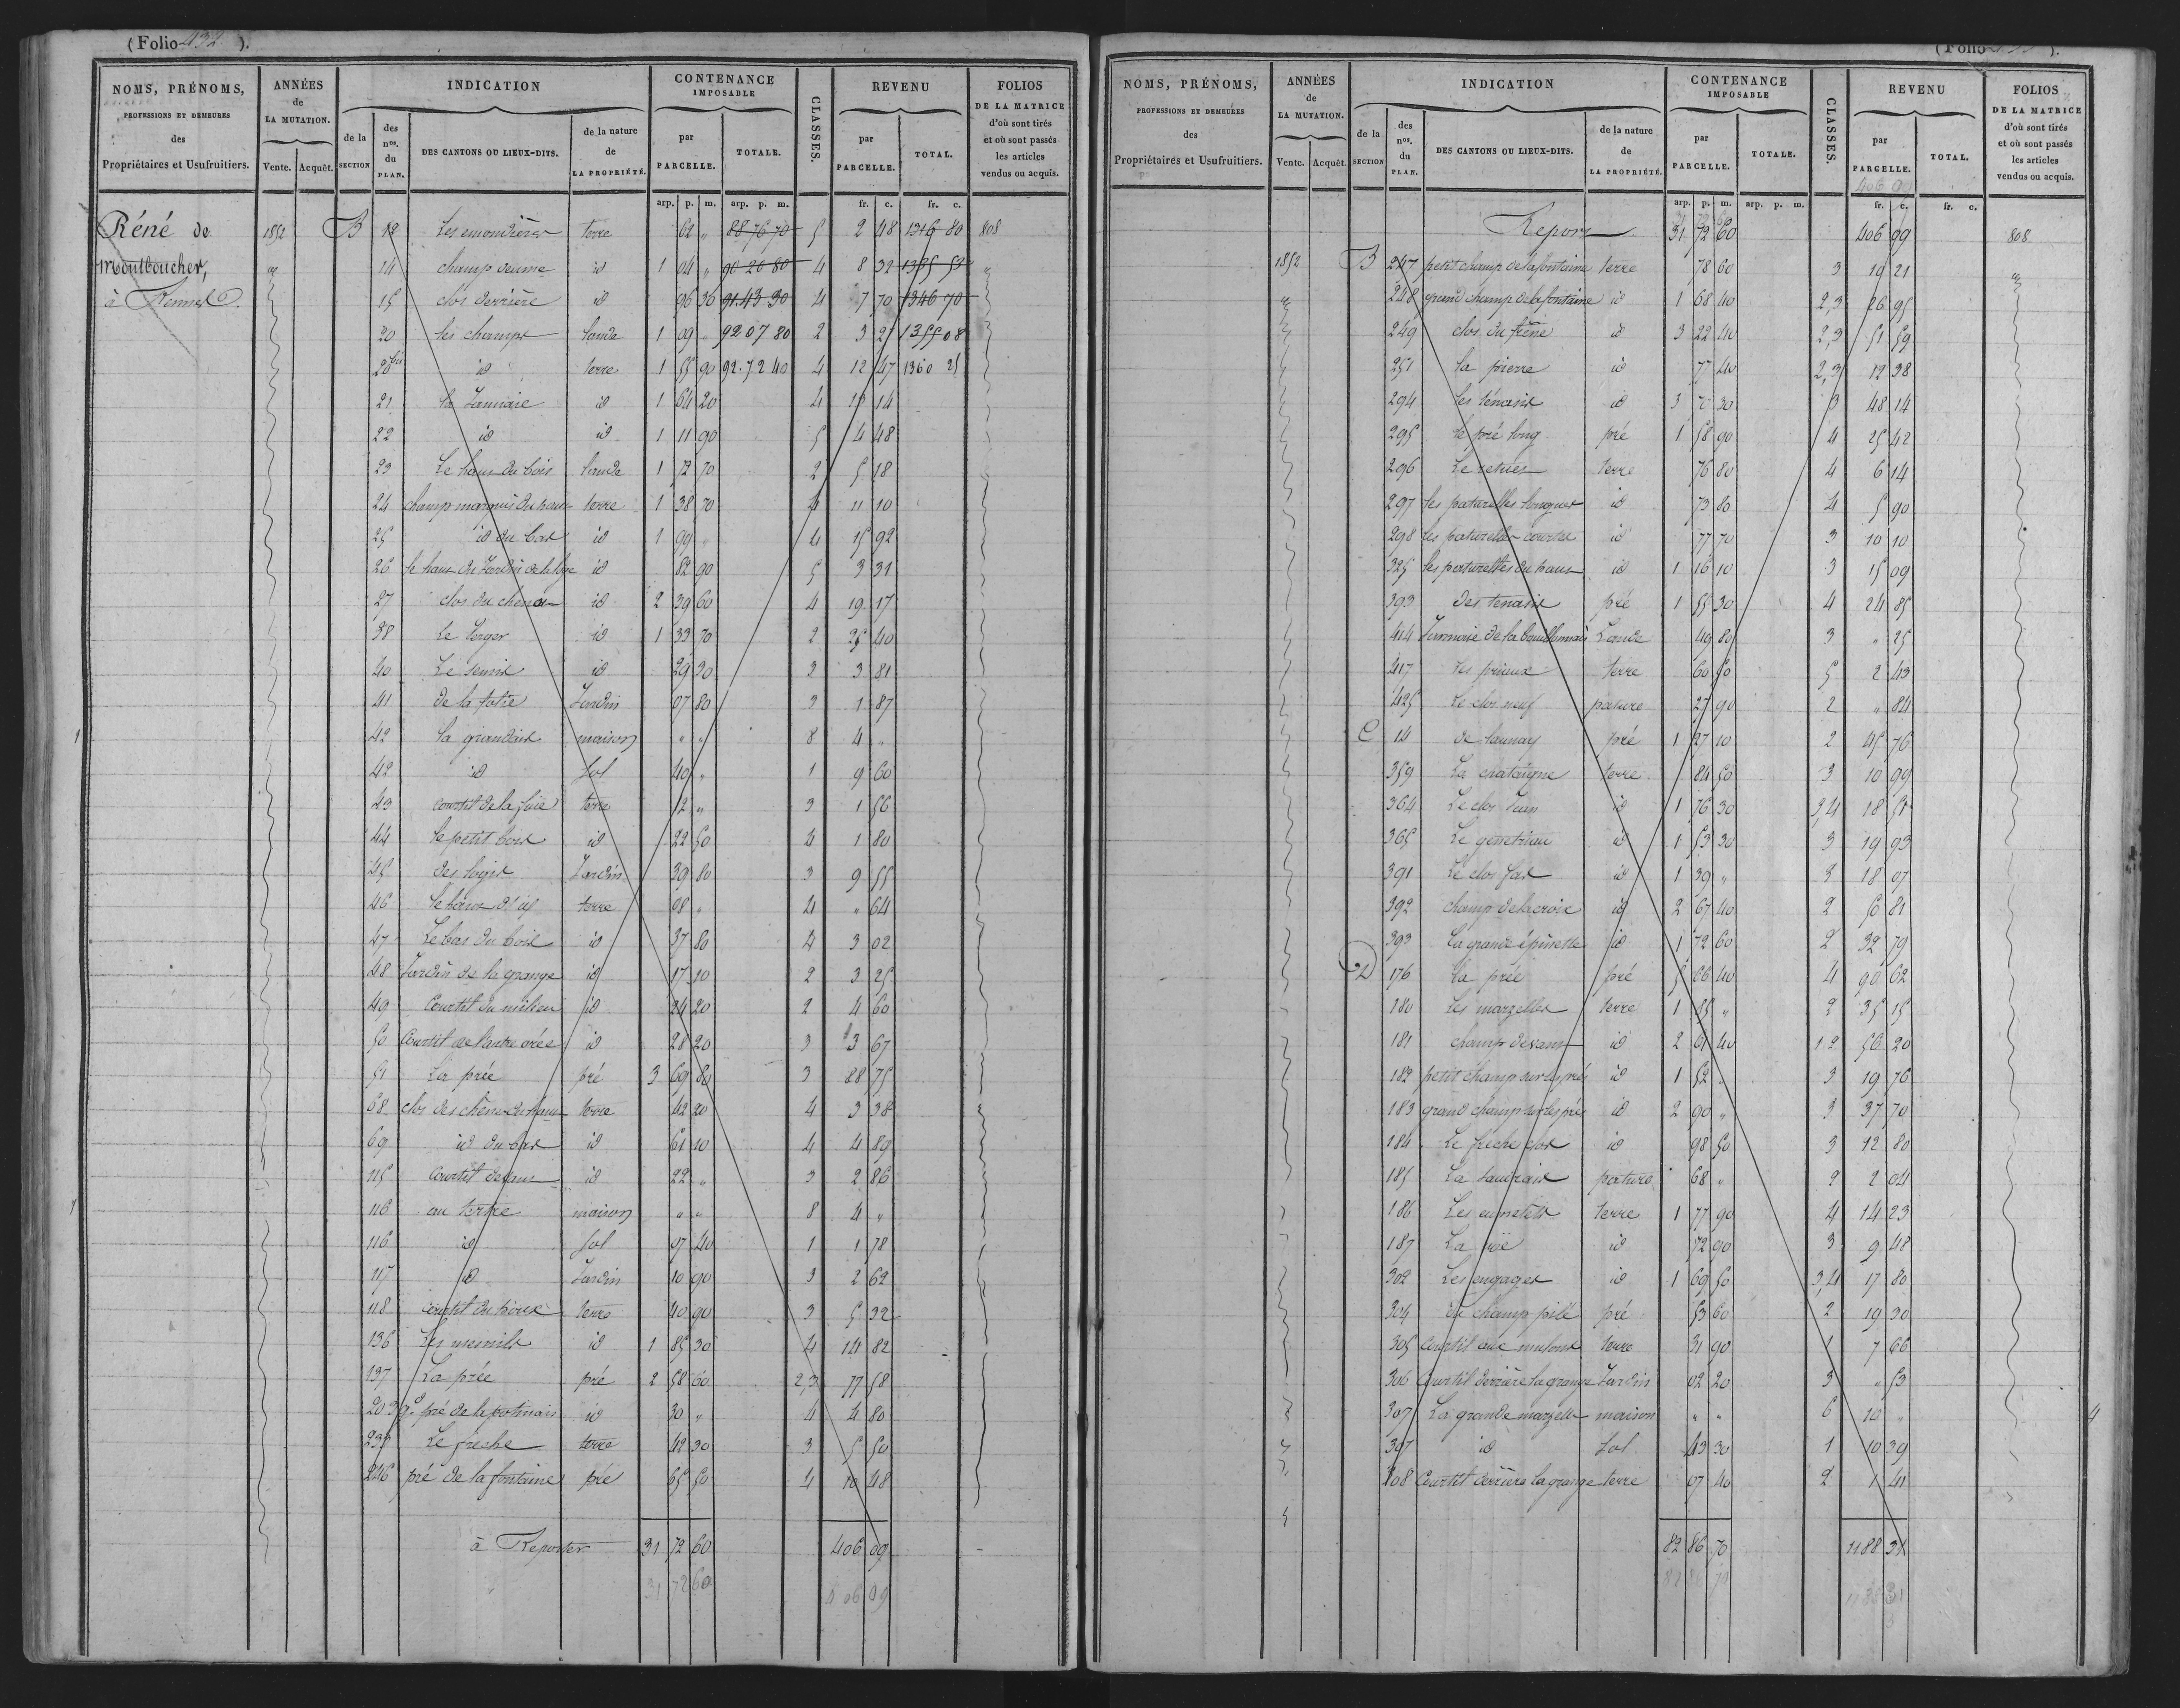 (Folio 432 ).
NOMS, PRÉNOMS, PROFESSIONS ET DEMEURES des Propriétaires et Usufruitiers.
ANNÉES de LA MUTATION. Vente. Acquêt.
INDICATION
de la SECTION
des nos. du PLAN.
DES CANTONS OU LIEUX-DITS.
de la nature de LA PROPRIÉTÉ.
CONTENANCE IMPOSABLE
par PARCELLE. TOTALE.
CLASSES.
REVENU
par PARCELLE. TOTAL.
FOLIOS DE LA MATRICE d'où sont tirés et où sont passés les articles vendus ou acquis.
arp. p. m. arp. p. m. fr. c. fr. c.
Réné de 1852 B 12 Les emondières terre 62 „ 88 76 70 5 2 48 1316 80 808
Montboucher, 14 champ id 1 04 „ 90 20 80 4 8 32
à Rennes 15 clos derrière id 96 30 91.43 30 4 7 70 1346 70
20 les champs lande 1 09 „ 92 07 80 2 3 27 1355 08
20 bis id terre 1 55 90 92.72 40 4 12 47 1360 25
21 la Janniaie id 1 64 20 4 13 14
22 id id 1 11 90 5 4 48
23 Le haut du bois lande 1 72 70 2 5 18
24 champ marquis du haut terre 1 38 70 4 11 10
25 id du bas id 1 99 „ 4 15 92
26 le haut du Jardin de la loge id 82 90 5 3 31
27 clos du chêne id 2 39 60 4 19 17
38 Le Verger id 1 33 70 2 25 40
40 Le id 29 30 3 3 81
41 de la Jardin 07 80 3 1 87
42 la maison „ „ 8 4 „
42 id Sol 40 „ 1 9 60
43 courtil de la terre 12 „ 3 1 56
44 le petit bois id 22 50 4 1 80
45 des logis Jardin 39 80 3 9 55
46 le haut terre 08 „ 4 „ 64
47 Le bas du bois id 37 80 4 3 02
48 Jardin de la grange id 17 10 2 3 25
49 Courtil du milieu id 24 20 2 4 60
50 Courtil de l'autre id 28 20 3 3 67
51 La prée pré 3 69 80 3 88 75
68 clos des chênes du haut terre 42 20 4 3 38
69 id du bas id 61 10 4 4 89
115 Courtil devant id 22 „ 3 2 86
116 au tertre maison „ „ 8 4 „
116 id Sol 07 40 1 1 78
117 id Jardin 10 90 3 2 62
118 courtil du terre 40 90 3 5 32
136 Les id 1 85 30 4 14 82
137 La prée pré 2 58 60 2,3 77 58
203 gd pré de la id 30 „ 4 4 80
233 Le freche terre 42 30 3 5 50
246 pré de la fontaine pré 65 50 4 10 48
à Reporter 31 72 60 406 09
31 72 60 406 09
NOMS, PRÉNOMS, PROFESSIONS ET DEMEURES des Propriétaires et Usufruitiers.
ANNÉES de LA MUTATION. Vente. Acquêt.
INDICATION
de la SECTION
des nos. du PLAN.
DES CANTONS OU LIEUX-DITS.
de la nature de LA PROPRIÉTÉ.
CONTENANCE IMPOSABLE
par PARCELLE. TOTALE.
CLASSES.
REVENU
par PARCELLE. TOTAL.
FOLIOS DE LA MATRICE d'où sont tirés et où sont passés les articles vendus ou acquis.
arp. p. m. arp. p. m. fr. c. fr. c.
Report 31 72 60 406 09 808
1852 B 247 petit champ de la fontaine terre 78 60 3 19 21
248 grand champ de la fontaine id 1 68 40 2,3 26 95
249 clos du frêne id 3 22 40 2,3 51 59
251 la pierre id 77 40 2,3 12 38
294 les id 3 70 30 3 48 14
295 le pré long pré 1 58 90 4 25 42
296 Le terre 76 80 4 6 14
297 les paturelles longues id 73 80 4 5 90
298 les paturelles courtes id 77 70 3 10 10
325 les paturelles du haut id 1 16 10 3 15 09
393 des pré 1 55 30 4 24 85
414 Lande 49 80 3 „ 25
417 les terre 60 50 5 2 43
425 Le clos neuf pature 27 90 2 „ 84
C 14 de launay pré 1 27 10 2 45 76
359 La chataigne terre 84 50 3 10 99
364 Le clos id 1 76 30 3,4 18
365 Le id 1 53 30 3 19 93
391 Le clos id 1 39 „ 3 18 07
392 champ de la croix id 2 67 40 2 50 81
393 La grande épinette id 1 72 60 2 32 79
D 176 la prée pré 5 66 40 4 90 62
180 Les marzelles terre 1 85 „ 2 35 15
181 champ devant id 2 61 40 1 2 56 20
182 petit champ sur les prés id 1 52 „ 3 19 76
183 grand champ sur les prés id 2 90 „ 3 37 70
184 Le freche clos id 98 50 3 12 80
185 La saudrais pature 68 „ 2 2 04
186 Les terre 1 77 90 4 14 23
187 La id 72 90 3 9 48
302 Les engages id 1 69 50 3,4 17 80
304 du champ pilé pré 53 60 2 19 30
305 Courtil terre 31 90 1 7 66
306 Courtil derrière la grange Jardin 02 20 3 „ 53
307 La grande marzelle maison „ „ 6 10 „ 4
307 id Sol 43 30 1 10 39
308 Courtil derrière la grange terre 07 40 2 1 41
82 86 70 1188 34